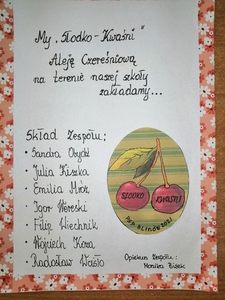 My „Słodko-Kwaśni”
Aleję Czereśniową
na terenie naszej szkoły
zakładamy...
Skład Zespołu:
• Sandra
• Julia Kiszka
• Emilia Mróz
• Igor
• Filip Wiechnik
• Wojciech Koza
• Radosław Wasło
SŁODKO
KWAŚNI
PSP-BLINÓW 2021
Opiekun Zespołu:
Monika